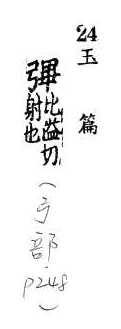 24
玉篇
彃比切
射也
(弓部 p248)